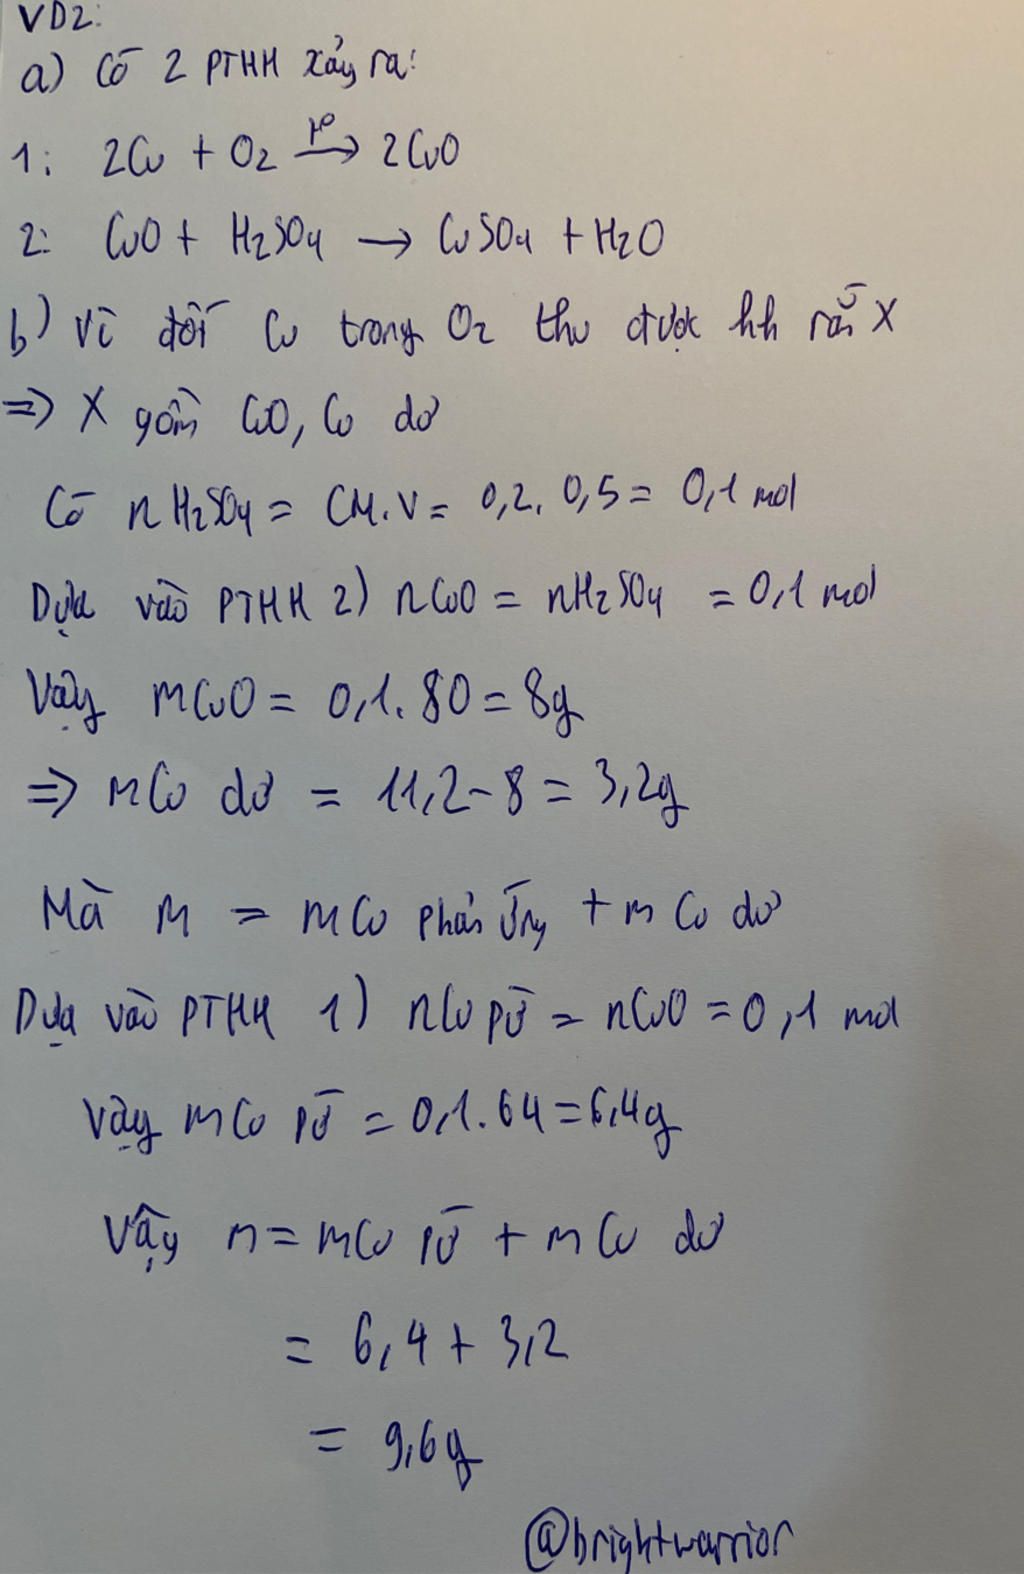 VD2:
a) Có 2 PTHH xảy ra:
1: 2Cu + O2 t° → 2CuO
2: CuO + H2SO4 → CuSO4 + H2O
b) Vì đốt Cu trong O2 thu được hh rắn X
=> X gồm CuO, Cu dư
Có nH2SO4 = CM.V = 0,2. 0,5 = 0,1 mol
Dựa vào PTHH 2) nCuO = nH2SO4 = 0,1 mol
Vậy mCuO = 0,1. 80 = 8g
=> mCu dư = 11,2 - 8 = 3,2g
Mà m = mCu phản ứng + m Cu dư
Dựa vào PTHH 1) nCu pứ = nCuO = 0,1 mol
Vậy mCu pứ = 0,1. 64 = 6,4g
Vậy m = mCu pứ + m Cu dư
= 6,4 + 3,2
= 9,6g
@brightwarrior